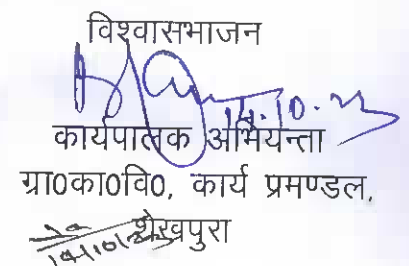 विश्वासभाजन
14.10.23
कार्यपालक अभियन्ता
ग्रा0का0वि0, कार्य प्रमण्डल,
शेखपुरा